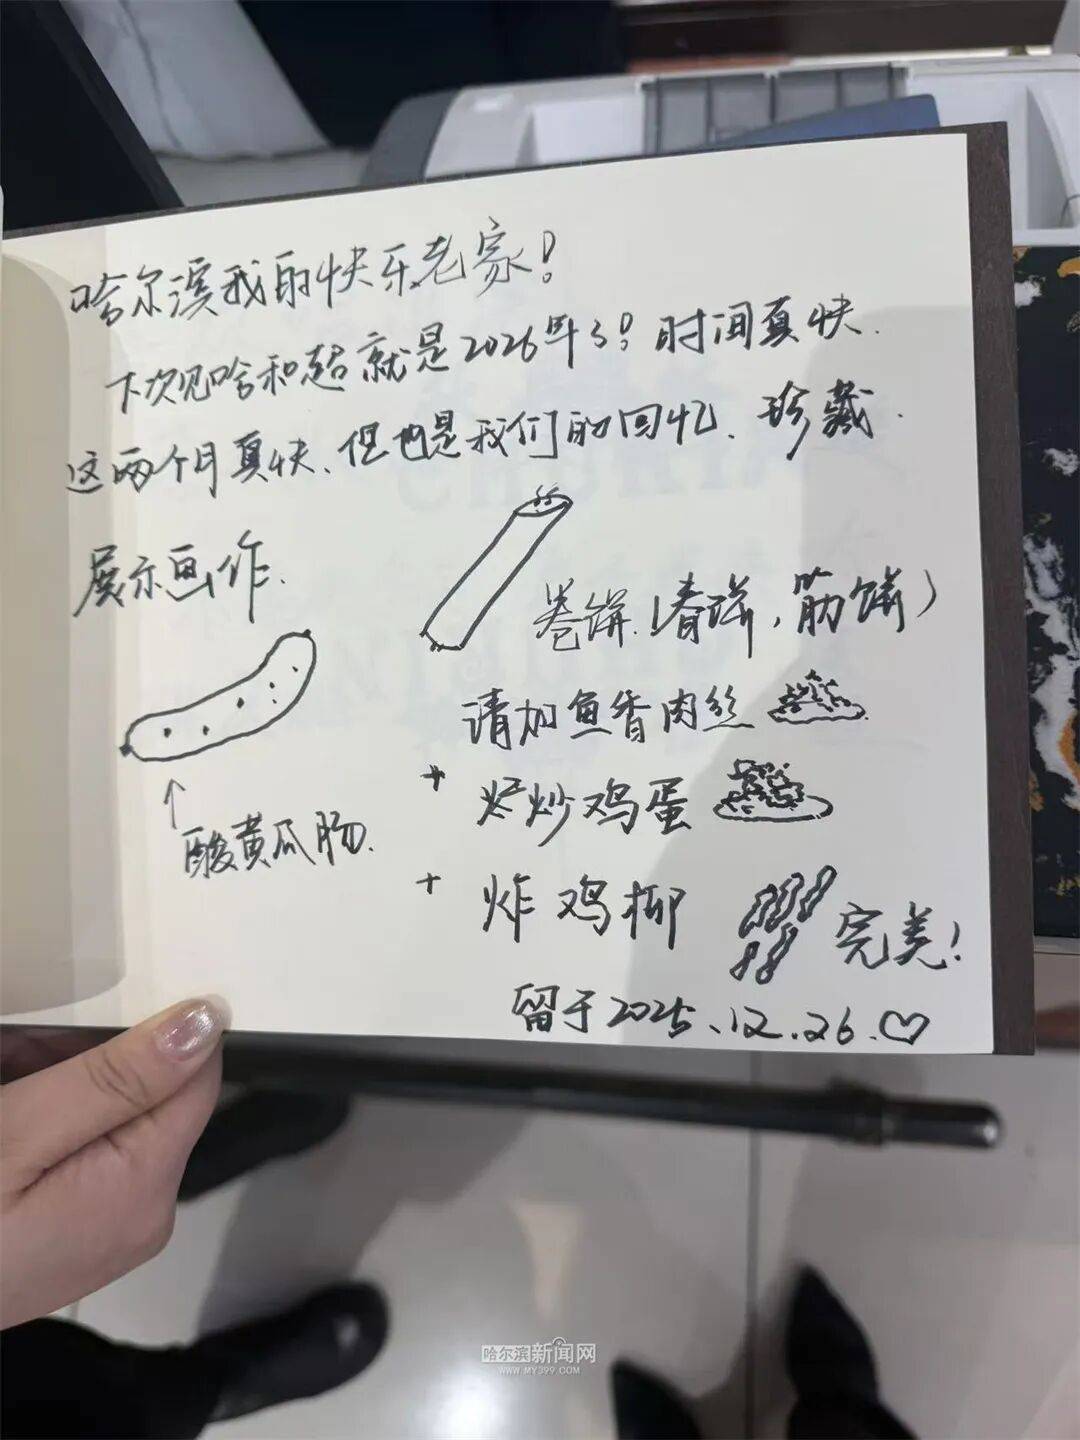 哈尔滨我的快乐老家!
下次见哈和超就是2026年了!时间真快.
这两个月真快、但也是我们的回忆、珍藏.
展示画作.
卷饼.(春饼,筋饼)
请加鱼香肉丝
+ 炒鸡蛋
+ 炸鸡柳
完美!
↑
酸黄瓜肠.
留于2025.12.26.♡
哈尔滨新闻网
WWW.MY399.COM